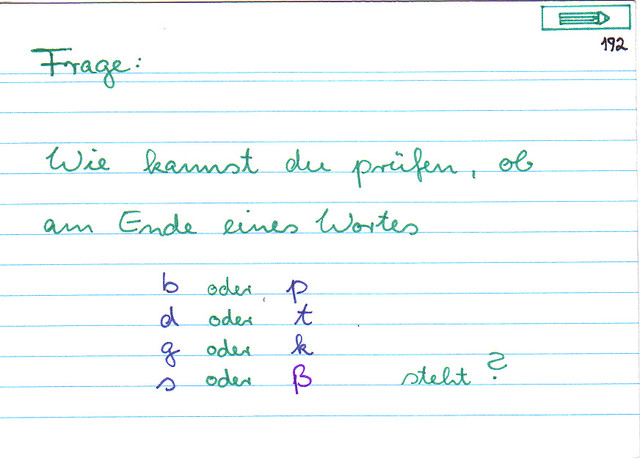 192
Frage:
Wie kannst du prüfen, ob
am Ende eines Wortes
b oder p
d oder t
g oder k
s oder ß steht?